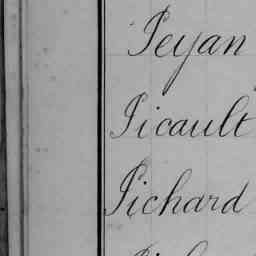 Peyan
Picault
Pichard